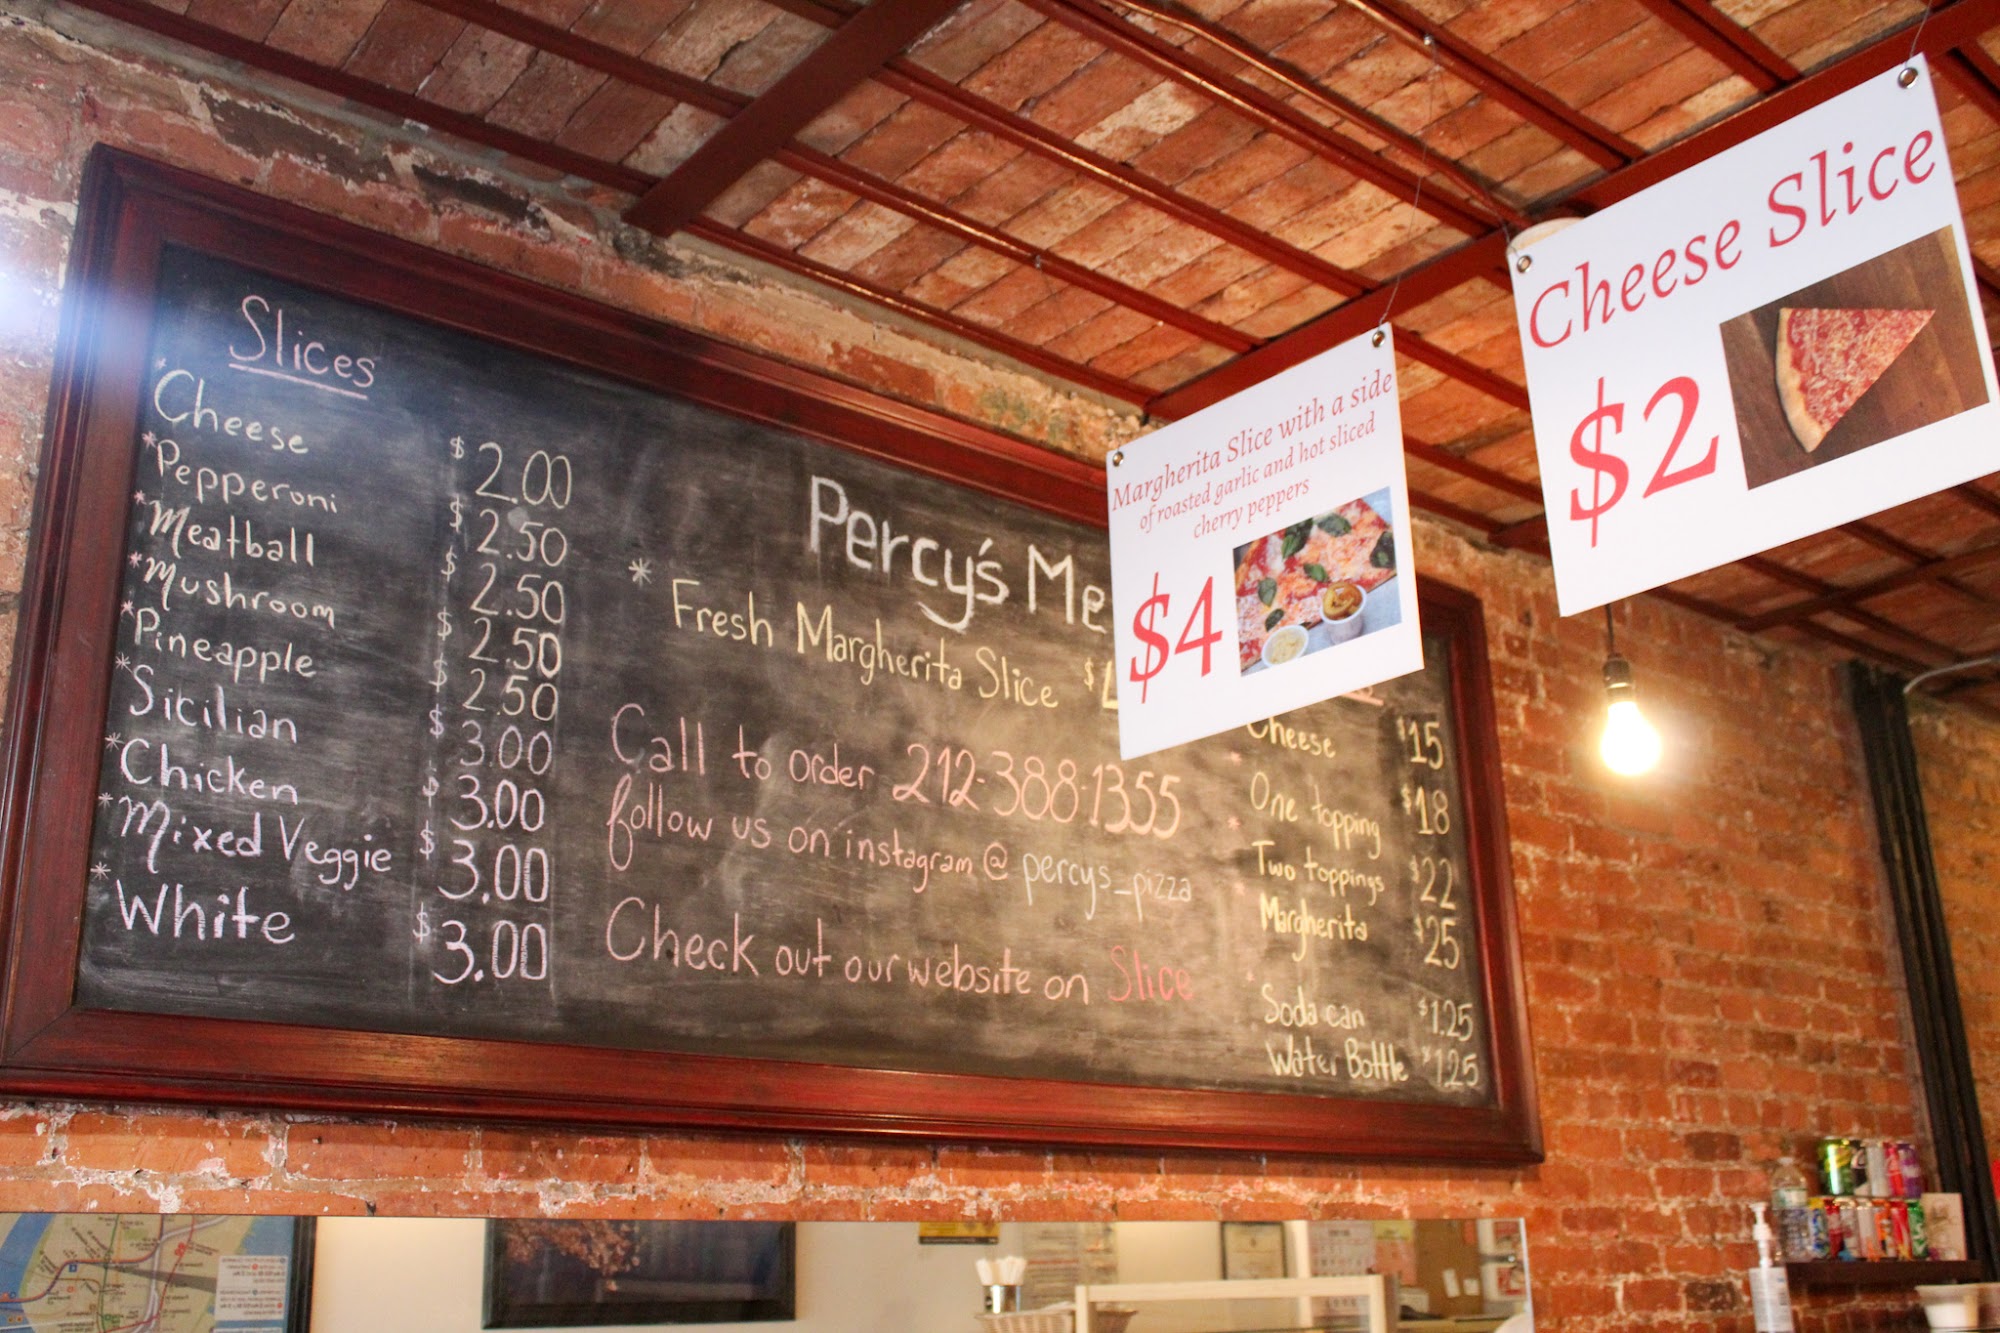 Slices
*Cheese $2.00
*Pepperoni $2.50
*Meatball $2.50
*Mushroom $2.50
*Pineapple $2.50
*Sicilian $3.00
*Chicken $3.00
*Mixed Veggie $3.00
*White $3.00
Percy's Me
* Fresh Margherita Slice $
Call to order 212-388-1355
follow us on instagram @ percys_pizza
Check out our website on Slice
Cheese $15
One topping $18
Two toppings $22
Margherita $25
Soda can $1.25
Water Bottle $1.25
Margherita Slice with a side
of roasted garlic and hot sliced
cherry peppers
$4
Cheese Slice
$2